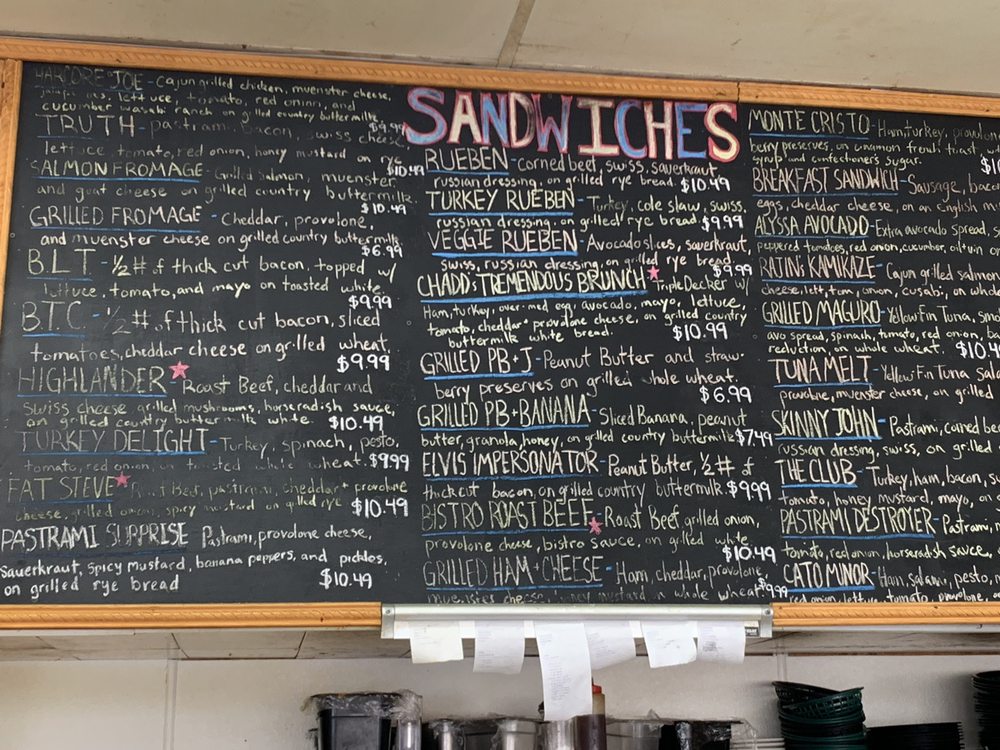 HARCORE JOE - Cajun grilled chicken, muenster cheese,
lettuce, tomato, red onion, and
cucumber wasabi ranch on grilled country buttermilk.
$9.99
TRUTH - pastrami, bacon, swiss cheese
lettuce, tomato, red onion, honey mustard on rye
$10.49
SALMON FROMAGE - Grilled Salmon, muenster
and goat cheese on grilled country buttermilk.
$10.49
GRILLED FROMAGE - cheddar, provolone,
and muenster cheese on grilled country buttermilk.
$6.99
B.L.T. - ½ # of thick cut bacon, topped w/
lettuce, tomato, and mayo on toasted white.
$9.99
B.T.C. - ½ # of thick cut bacon, sliced
tomatoes, cheddar cheese on grilled wheat.
$9.99
HIGHLANDER - Roast Beef, cheddar and
Swiss cheese grilled mushrooms, horseradish sauce,
on grilled country buttermilk white $10.49
TURKEY DELIGHT - Turkey, spinach, pesto,
tomato, red onion, on toasted whole wheat. $9.99
FAT STEVE - Roast Beef, pastrami, cheddar + provolone
cheese, grilled onion, spicy mustard on grilled rye $10.49
PASTRAMI SURPRISE Pastrami, provolone cheese,
sauerkraut, spicy mustard, banana peppers, and pickles,
on grilled rye bread $10.49
SANDWICHES
RUEBEN - corned beef, swiss, sauerkraut
russian dressing, on grilled rye bread. $10.49
TURKEY RUEBEN - Turkey, cole slaw, swiss,
russian dressing, on grilled rye bread. $9.99
VEGGIE RUEBEN - Avocado slices, sauerkraut
swiss, russian dressing, on grilled rye bread.
$9.99
CHADD's TREMENDOUS BRUNCH - Triple Decker w/
Ham, turkey, over-med egg, avocado, mayo, lettuce,
tomato, cheddar + provolone cheese, on grilled country
buttermilk white bread. $10.99
GRILLED PB+J - Peanut Butter and straw-
berry preserves on grilled whole wheat.
$6.99
GRILLED PB+BANANA - Sliced Banana, peanut
butter, granola, honey, on grilled country buttermilk $7.49
ELVIS IMPERSONATOR - Peanut Butter, ½ # of
thick cut bacon, on grilled country buttermilk. $9.99
BISTRO ROAST BEEF - Roast Beef grilled onion,
provolone cheese, bistro sauce, on grilled white
$10.49
GRILLED HAM + CHEESE - Ham, cheddar, provolone,
muenster cheese, honey mustard on whole wheat $9.99
MONTE CRISTO - Ham, turkey, provolon
berry preserves, on cinnamon french toast, w
syrup and confectioner's sugar.
BREAKFAST SANDWICH - Sausage, bac
eggs, cheddar cheese, on an English m
ALYSSA AVOCADO - Extra avocado spread, s
peppered tomatoes, red onion, cucumber, oil + vin o
RAJIN's KAMIKAZE - Cajun grilled salmon
cheese, lett, tom, onion, cusabi, on whole
GRILLED MAGURO - Yellow Fin Tuna, smo
avo spread, spinach, tomato, red onion, ba
reduction, on whole wheat. $10.4
TUNA MELT - Yellow Fin Tuna Sala
provolone, muenster cheese, on grilled
SKINNY JOHN - Pastrami, corned bee
russian dressing, swiss, on grilled
THE CLUB - Turkey, ham, bacon, s
tomato, honey mustard, mayo, on
PASTRAMI DESTROYER - Pastrami,
tomato, red onion, horseradish sauce,
CATO MINOR - Ham, Salami, pesto,
red onion, lettuce, tomato, provolone,